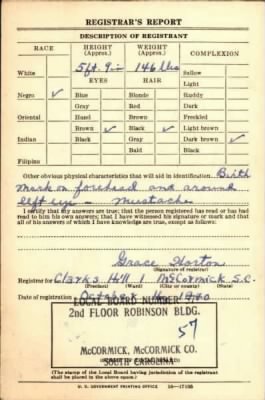 REGISTRAR'S REPORT
DESCRIPTION OF REGISTRANT
RACE HEIGHT (Approx.) WEIGHT (Approx.) COMPLEXION
5 ft. 9 in 146 lbs
White Sallow
EYES HAIR Light
Negro ✓ Blue Blonde Ruddy
Gray Red Dark
Oriental Hazel Brown Freckled
Brown ✓ Black ✓ Light brown ✓
Indian Black Gray Dark brown
Bald Black
Filipino
Other obvious physical characteristics that will aid in identification Birth
mark on forehead and around
left eye - Mustache
I certify that my answers are true; that the person registered has read or has had
read to him his own answers; that I have witnessed his signature or mark and that
all of his answers of which I have knowledge are true, except as follows:
Grace Horton
(Signature of registrar)
Registrar for Clarks Hill 1 McCormick S.C.
(Precinct) (Ward) (City or county) (State)
Date of registration October 16 1940
LOCAL BOARD NUMBER 1
2nd FLOOR ROBINSON BLDG.
57
McCORMICK, McCORMICK CO.
SOUTH CAROLINA
(The stamp of the Local Board having jurisdiction of the registrant
shall be placed in the above space.)
U. S. GOVERNMENT PRINTING OFFICE 16—17105